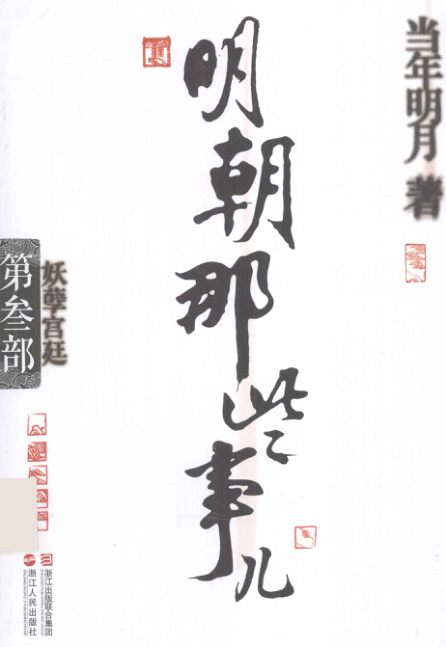 当年明月 著
明朝那些事儿
第叁部
妖孽宫廷
浙江出版联合集团
浙江人民出版社